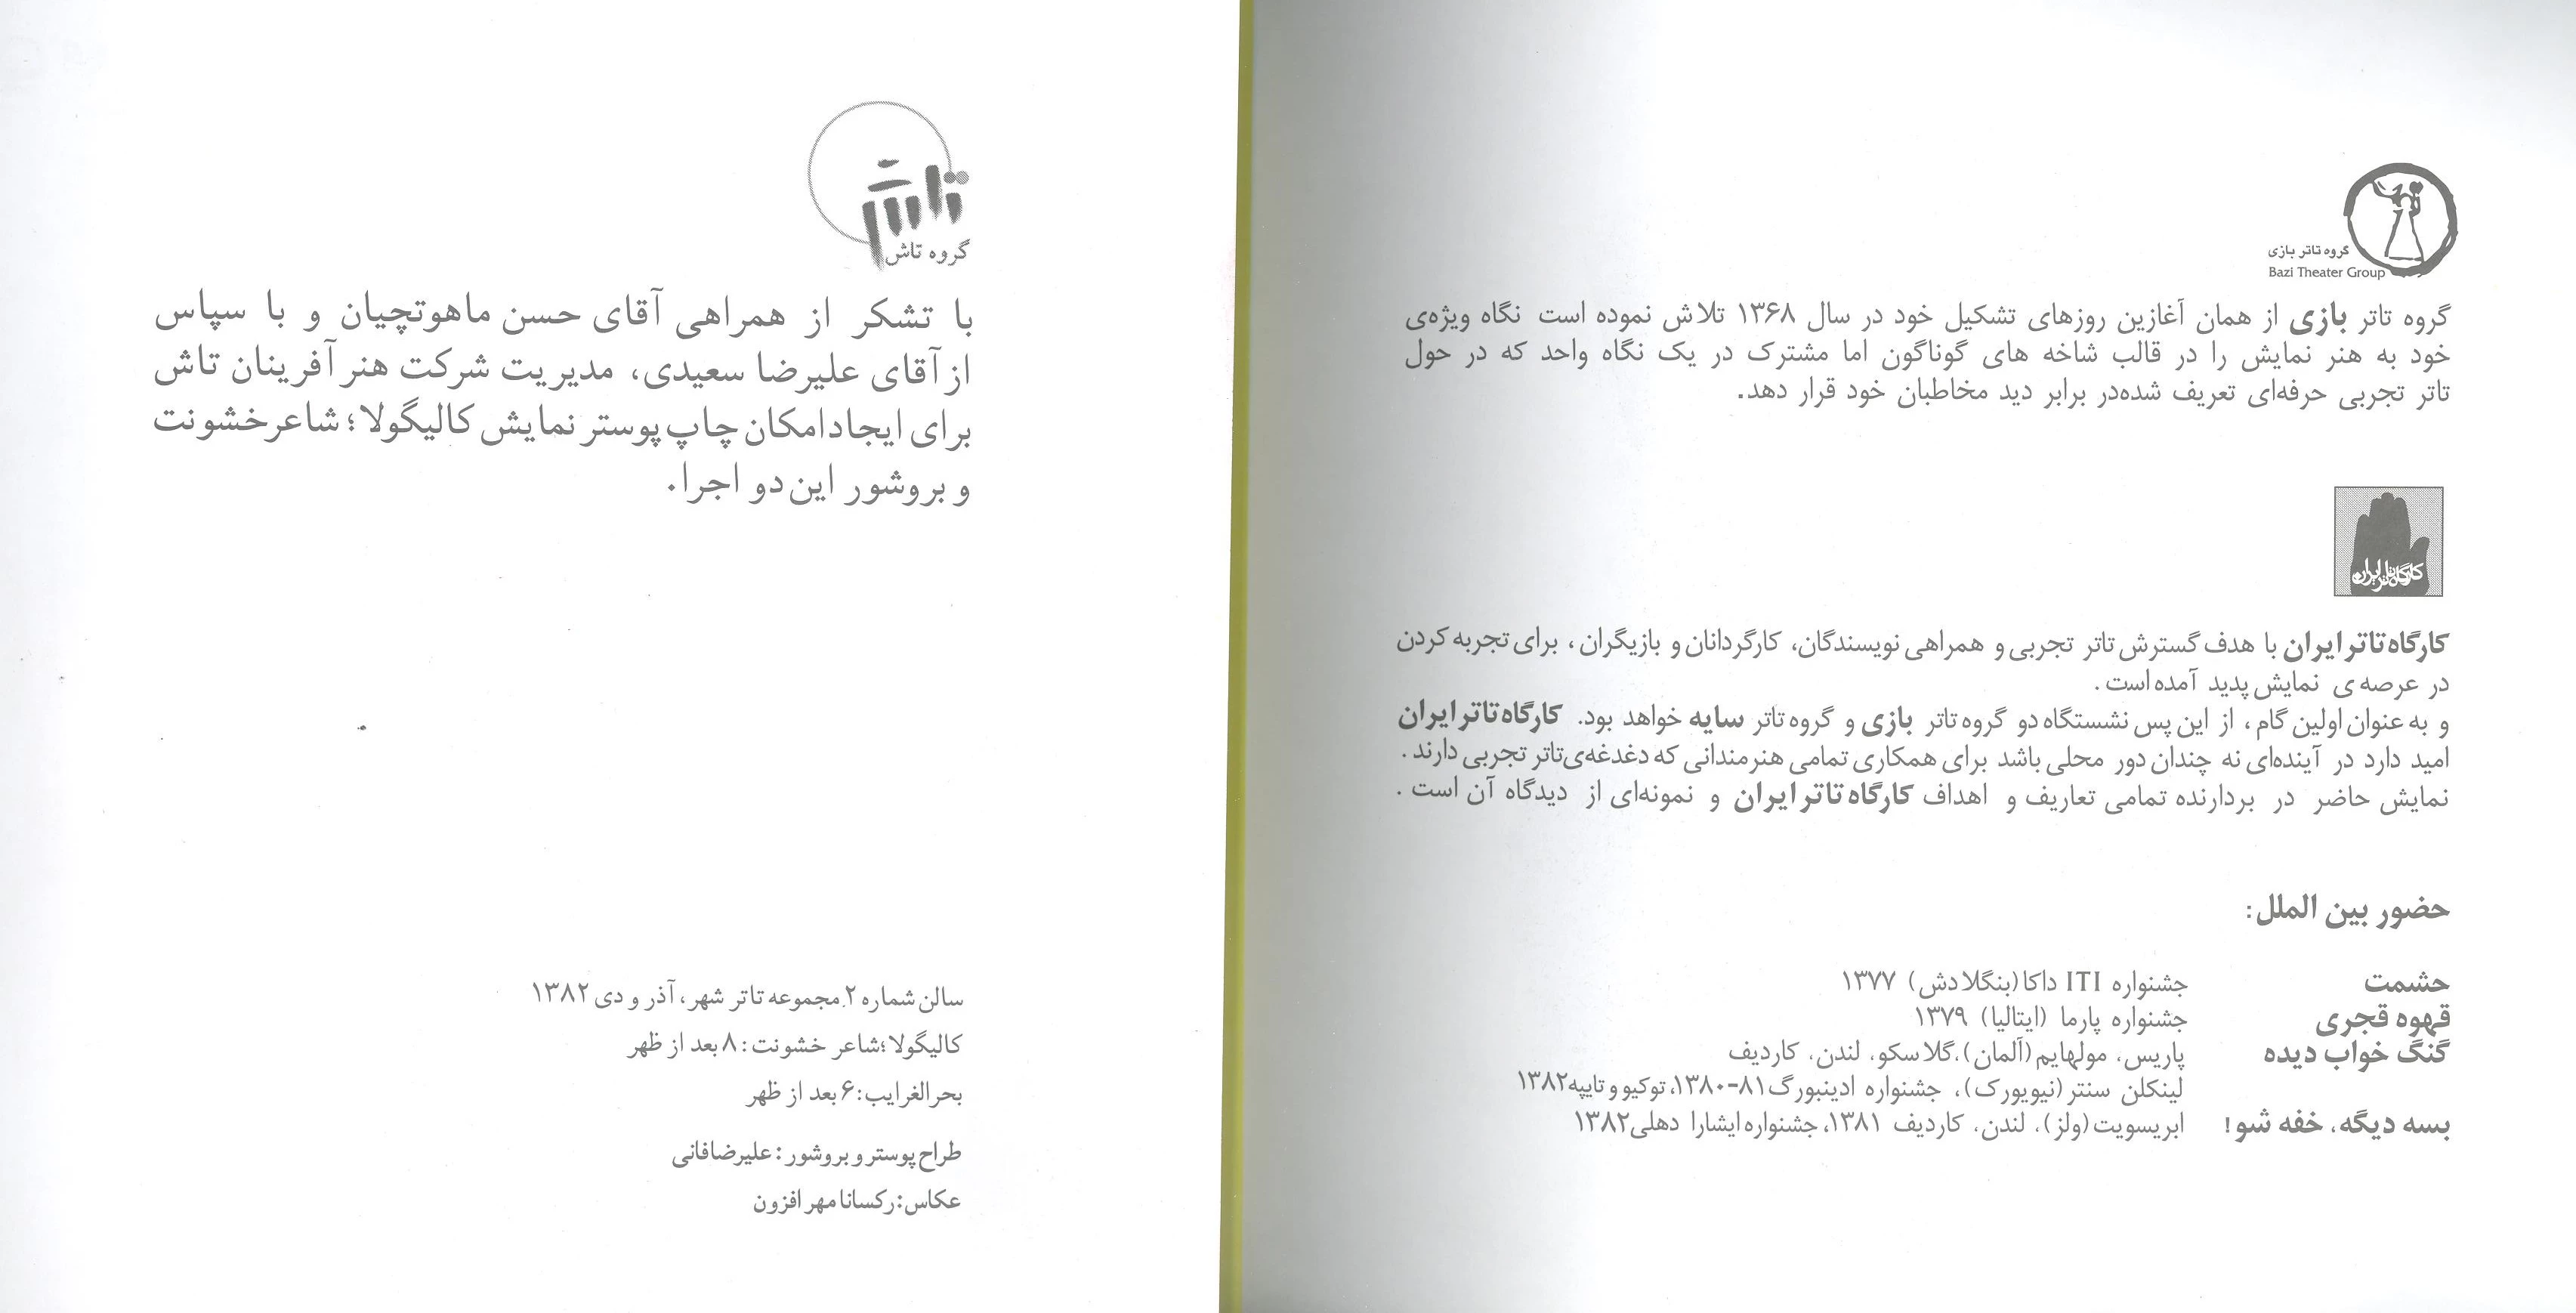 گروه تاتر بازی
Bazi Theater Group
گروه تاتر بازی از همان آغازین روزهای تشکیل خود در سال ۱۳۶۸ تلاش نموده است نگاه ویژه‌ی
خود به هنر نمایش را در قالب شاخه های گوناگون اما مشترک در یک نگاه واحد که در حول
تاتر تجربی حرفه‌ای تعریف شده‌در برابر دید مخاطبان خود قرار دهد.
کارگاه تاتر ایران
کارگاه تاتر ایران با هدف گسترش تاتر تجربی و همراهی نویسندگان، کارگردانان و بازیگران، برای تجربه کردن
در عرصه ی نمایش پدید آمده است.
و به عنوان اولین گام، از این پس نشستگاه دو گروه تاتر بازی و گروه تاتر سایه خواهد بود. کارگاه تاتر ایران
امید دارد در آینده‌ای نه چندان دور محلی باشد برای همکاری تمامی هنرمندانی که دغدغه‌ی تاتر تجربی دارند.
نمایش حاضر در بردارنده تمامی تعاریف و اهداف کارگاه تاتر ایران و نمونه‌ای از دیدگاه آن است.
حضور بین الملل:
حشمت جشنواره ITI داکا (بنگلادش) ۱۳۷۷
قهوه قجری جشنواره پارما (ایتالیا) ۱۳۷۹
گنگ خواب دیده پاریس، مولهایم (آلمان)، گلاسکو، لندن، کاردیف
لینکلن سنتر (نیویورک)، جشنواره ادینبورگ ۸۱-۱۳۸۰، توکیو و تایپه ۱۳۸۲
بسه دیگه، خفه شو! ابریسویت (ولز)، لندن، کاردیف ۱۳۸۱، جشنواره ایشارا دهلی ۱۳۸۲
تاش
گروه تاش
با تشکر از همراهی آقای حسن ماهوتچیان و با سپاس
از آقای علیرضا سعیدی، مدیریت شرکت هنر آفرینان تاش
برای ایجاد امکان چاپ پوستر نمایش کالیگولا؛ شاعر خشونت
و بروشور این دو اجرا.
سالن شماره ۲ مجموعه تاتر شهر، آذر و دی ۱۳۸۲
کالیگولا؛ شاعر خشونت: ۸ بعد از ظهر
بحر الغرایب: ۶ بعد از ظهر
طراح پوستر و بروشور: علیرضا فانی
عکاس: رکسانا مهر افزون